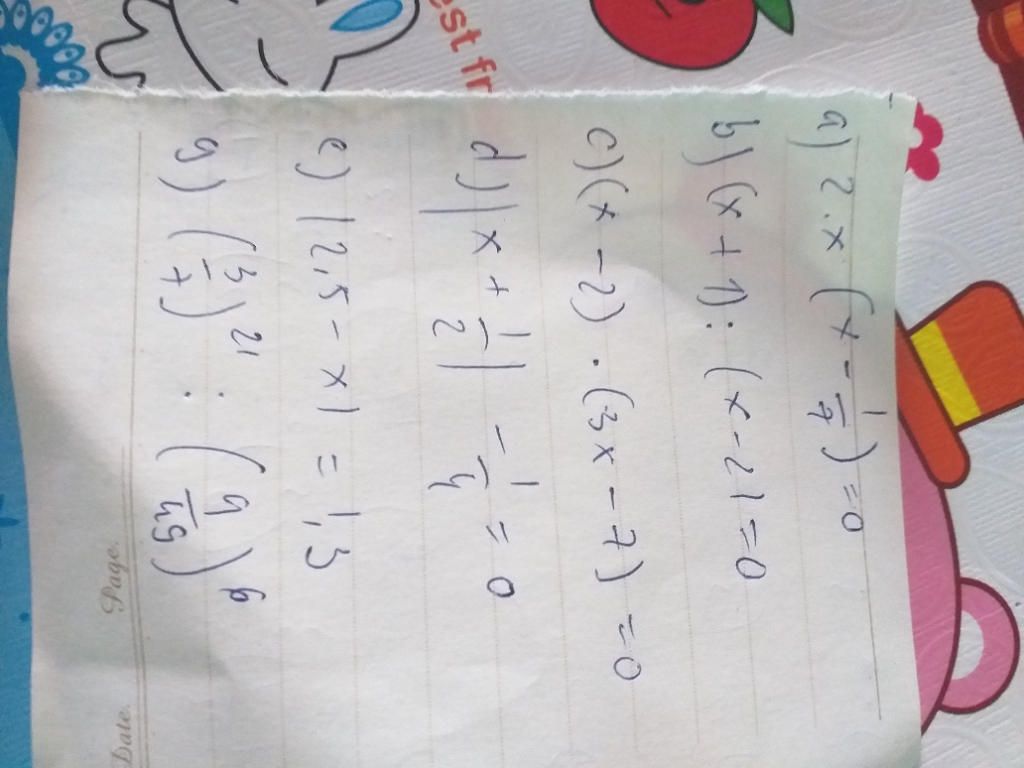 a) 2.x (x - 1/7) = 0
b) (x + 1) : (x - 2) = 0
c) (x - 2) . (3x - 7) = 0
d) |x + 1/2| - 1/4 = 0
e) |2,5 - x| = 1,3
g) (3/7)^21 : (9/49)^6
Page.
Date.
est fr